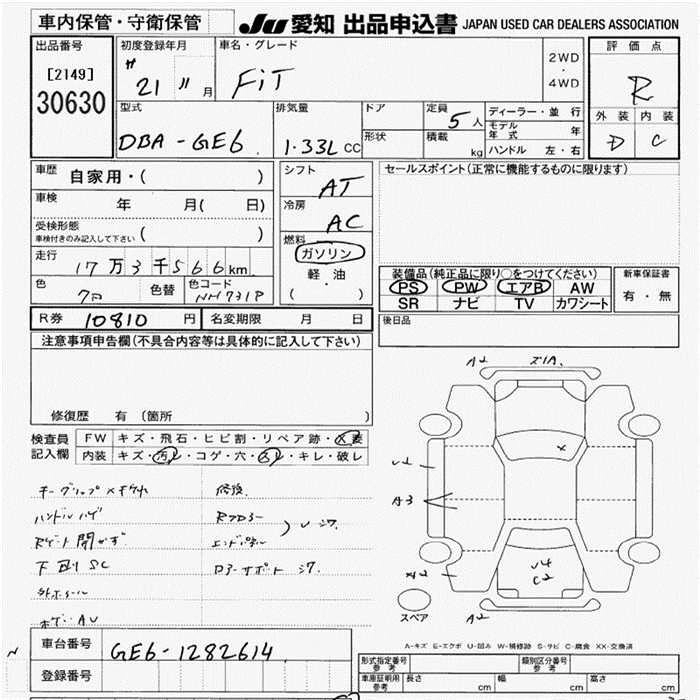 車内保管・守衛保管
JU 愛知 出品申込書 JAPAN USED CAR DEALERS ASSOCIATION
出品番号
[2149]
30630
初度登録年月
21 11 月
車名・グレード
FiT
2WD
・
4WD
評価点
R
外装 内装
D C
型式
DBA-GE6
排気量
1.33L CC
ドア
形状
定員
5人
積載
kg
ディーラー・並行
モデル年式 年
ハンドル 左・右
車歴
自家用・( )
車検
年 月( 日)
受検形態
車検付きのみ記入して下さい ( )
走行
17万3千566km
色
色替
色コード
NH731P
シフト
AT
冷房
AC
燃料
ガソリン
・
軽油
( )
セールスポイント(正常に機能するものに限ります)
装備品(純正品に限り○をつけてください)
PS PW エアB AW
SR ナビ TV カワシート
新車保証書
有・無
R券 10810 円 名変期限 月 日
後日品
注意事項申告欄(不具合内容等は具体的に記入して下さい)
修復歴 有 (箇所 )
検査員
記入欄
FW キズ・飛石・ヒビ割・リペア跡・X要
内装 キズ・汚レ・コゲ・穴・スレ・キレ・破レ
ハンドルハゲ
下廻SC
修復
A2
X
A3
X2
U4
C2
A2
スペア
A-キズ E-エクボ U-凹み W-補修跡 S-サビ C-腐食 XX-交換済
車台番号
GE6-1282614
登録番号
形式指定番号
参考
類別区分番号
参考
車庫証明用
参考
長さ cm 幅 cm 高さ cm